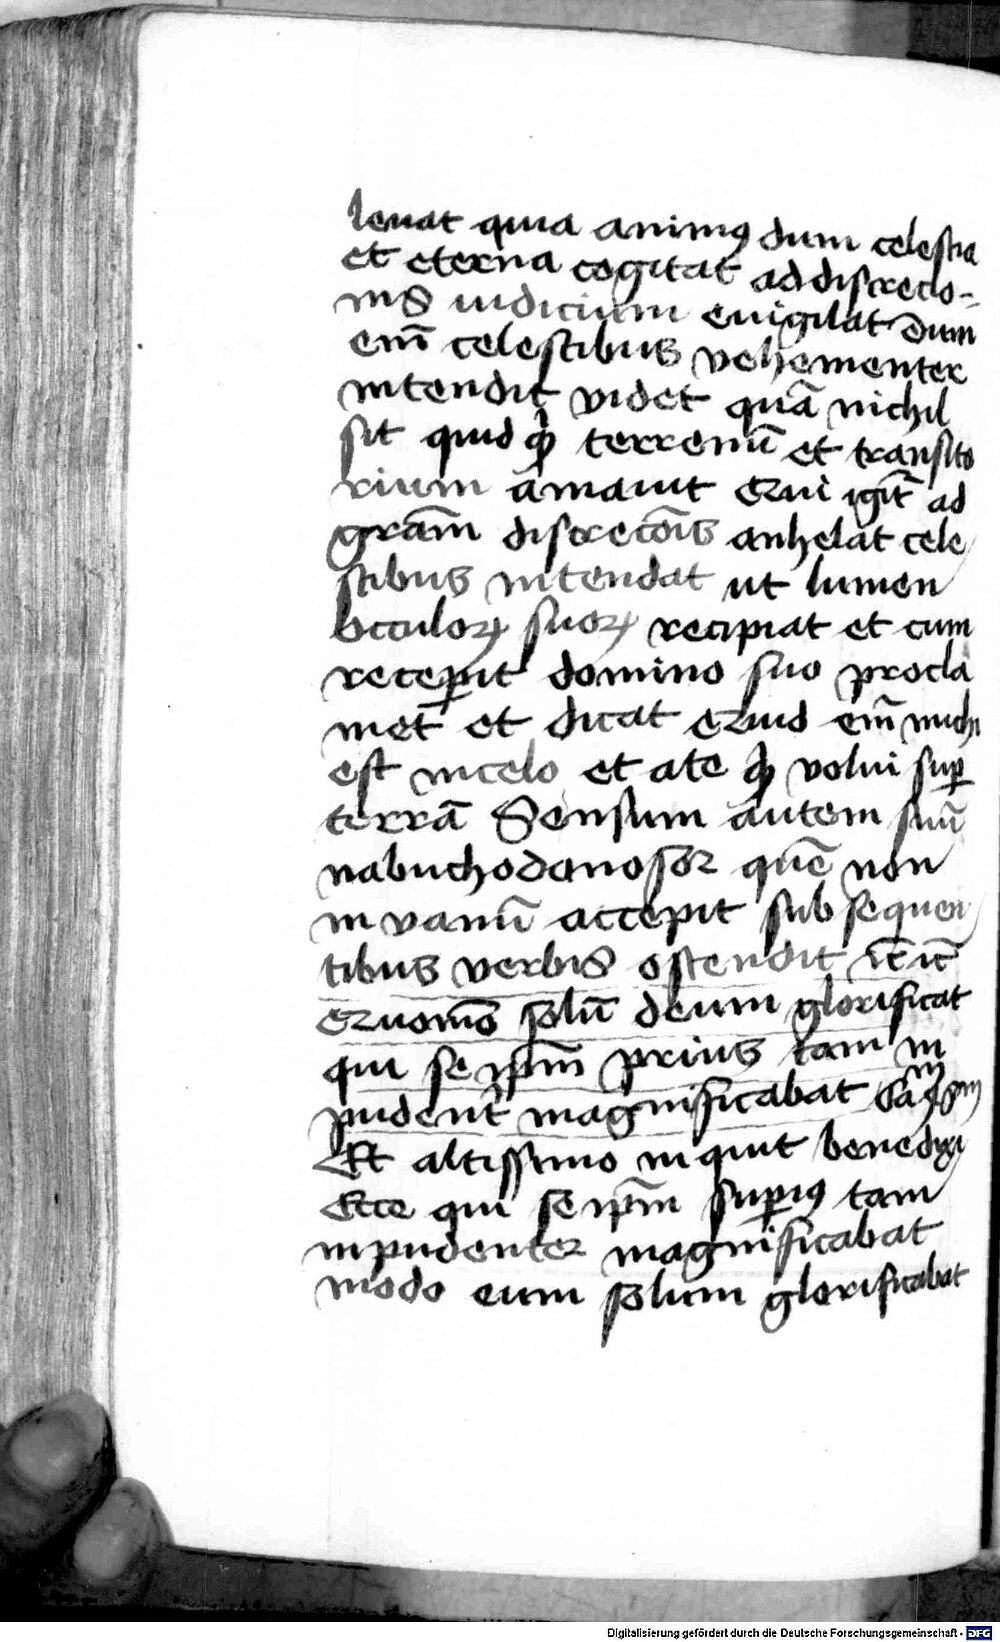 leuat quia animꝯ dum celestia
et eterna cogitat ad discrecio-
nis iudicium euigilat Dum
em̄ celestibus vehementer
intendit videt quā nichil
sit quid qͥ terrenū et transito
rium amauit igit̄ ad
gram̄ discrecōis anhelat cele
stibus intendat ut lumen
occulorꝝ suorꝝ recipiat et cum
receꝑit domino suo procla
met et dicat Quid em̄ michi
est in celo et a te qͥ volui suꝑ
terrā Sensum autem suū
nabuchodonosor quē non
in vanū accepit sub sequen
tibus verbis ostendit
solū deum glorificat
qui se ip̄m prius tam in
pudent̄ magnificabat
Et altissimo inquit benedixi
Ecce qui se ip̄m suꝑius tam
inpudenter magnificabat
modo eum solum glorificabat
Digitalisierung gefördert durch die Deutsche Forschungsgemeinschaft - DFG